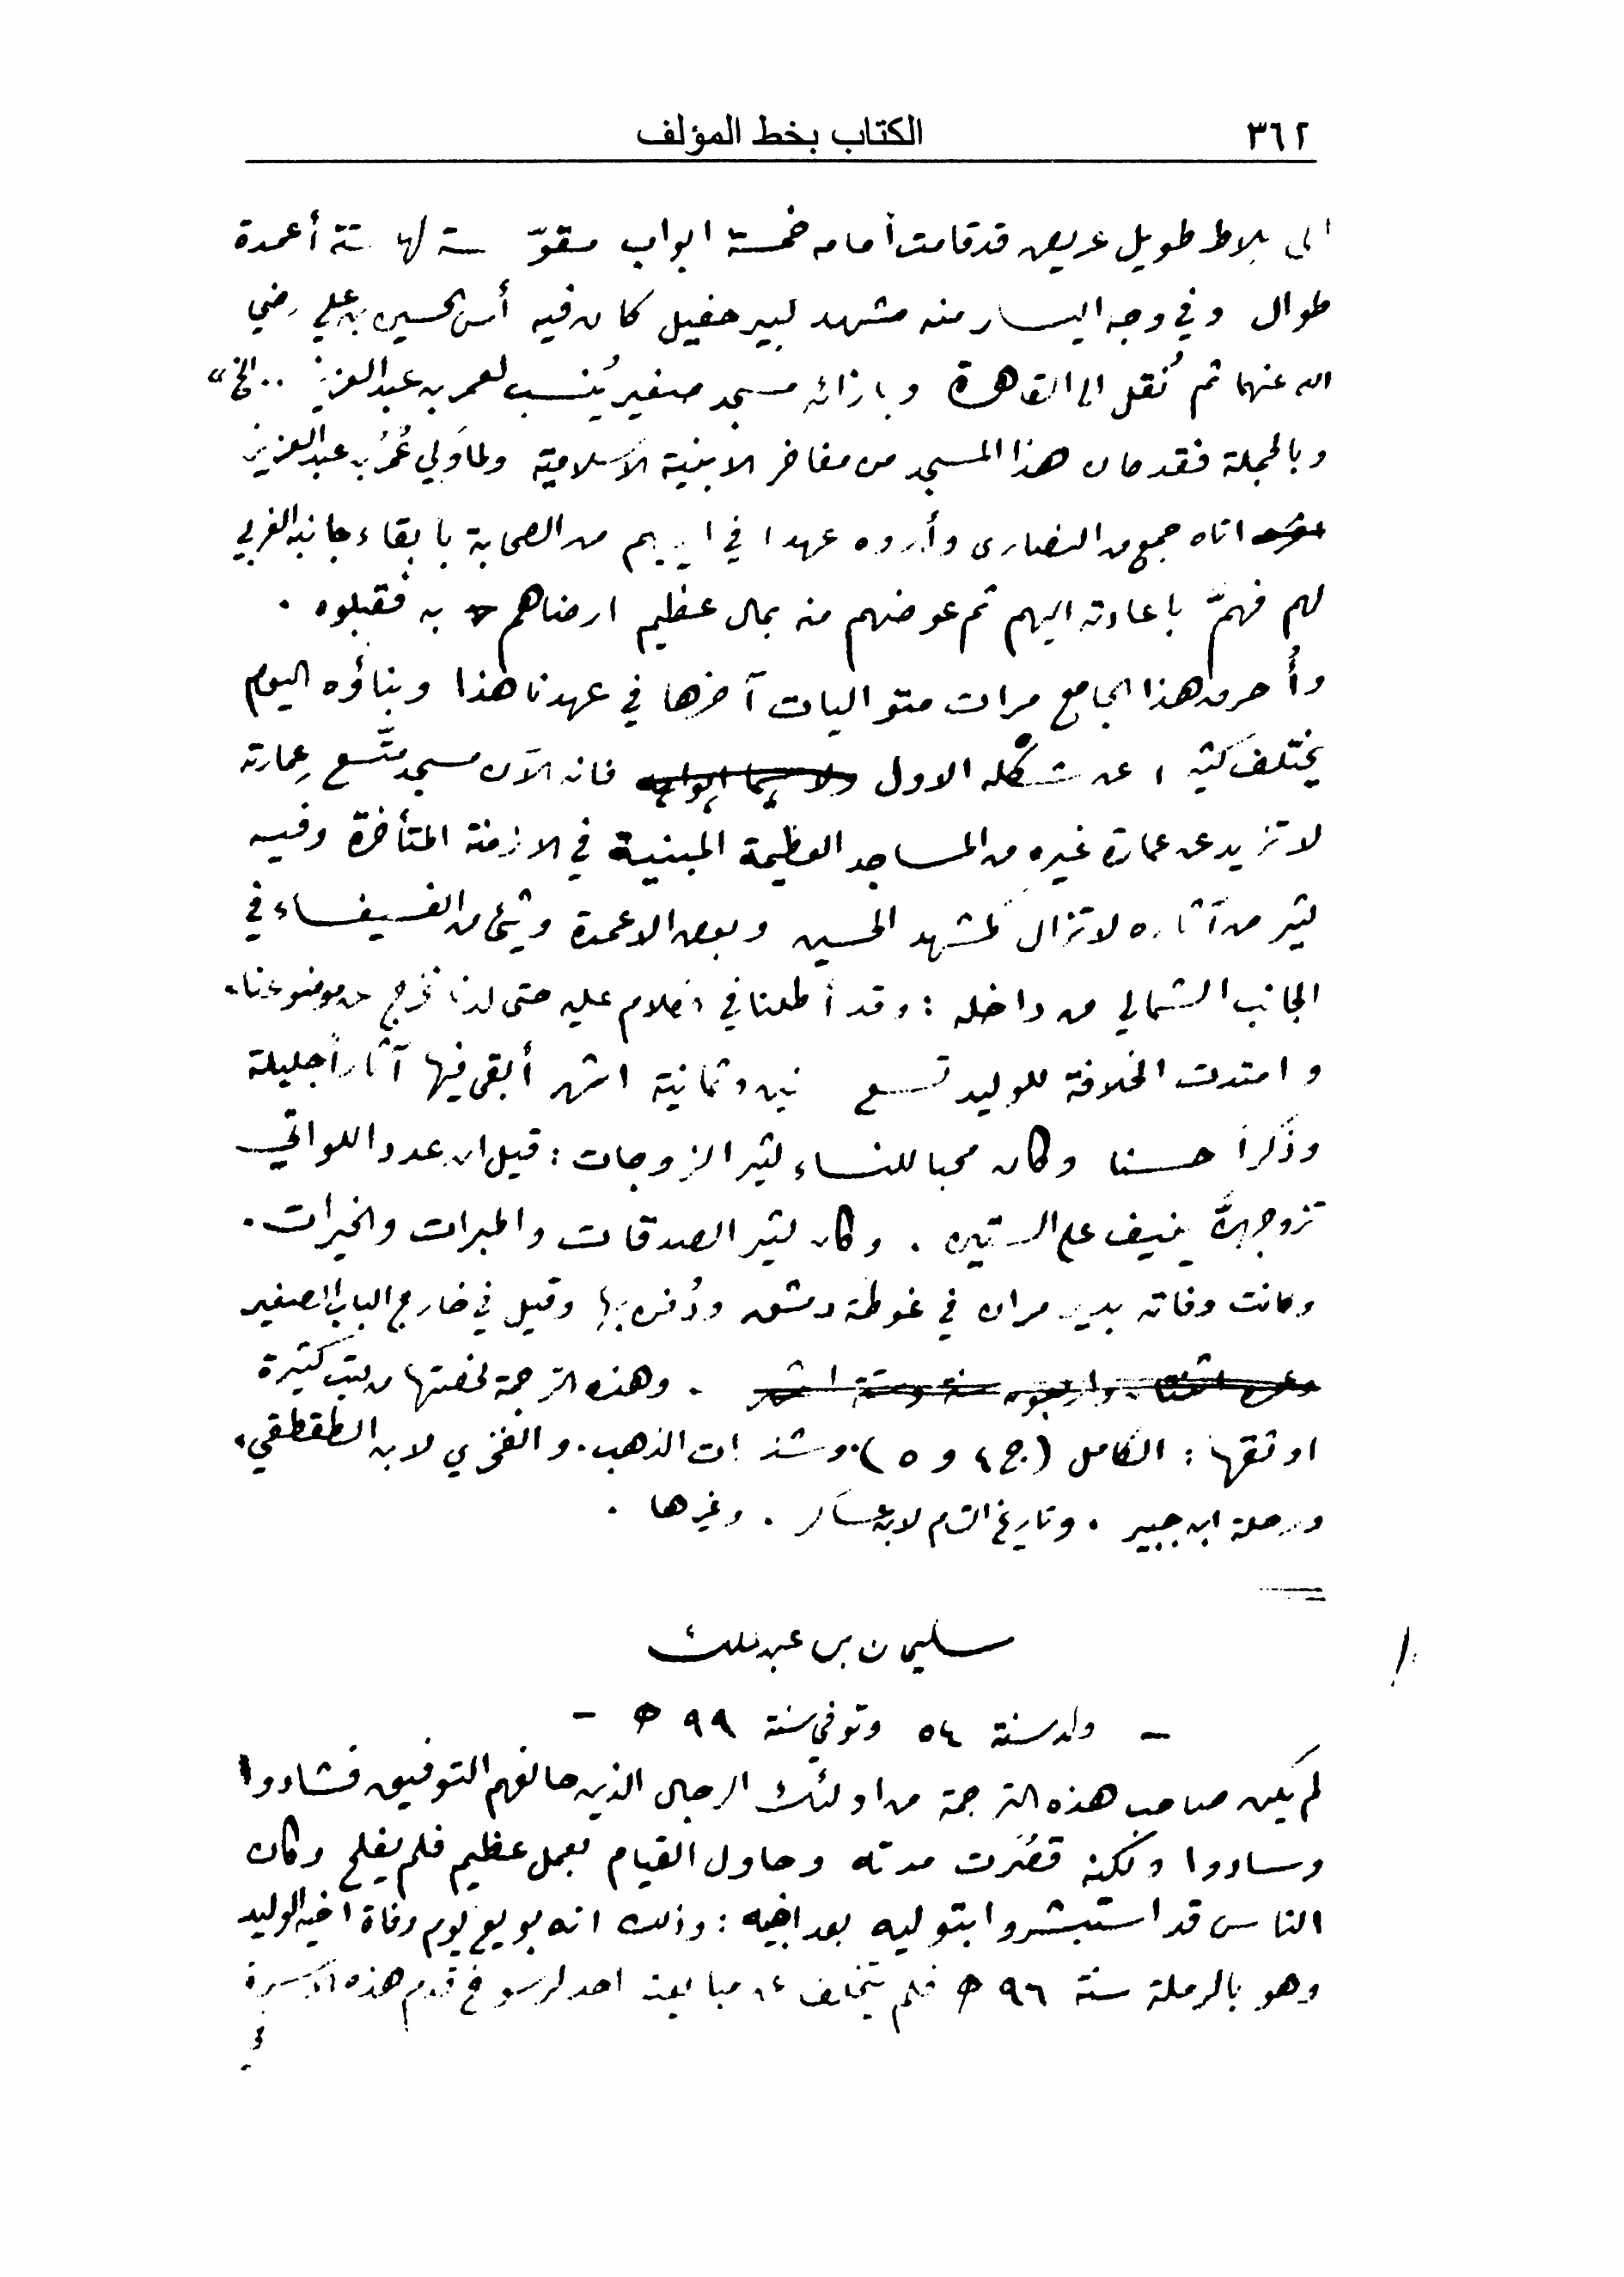 ٣٦٢ الكتاب بخط المؤلف
الى بلاط طويل عريض قد قامت أمامه خمسة ابواب مقوّسة لها ستة أعمدة
طوال وفي وجه اليسار منه مشهد كبير حفيل كان فيه رأس الحسين بن علي رضي
الله عنهما ثم نُقل الى القاهرة وبازائه مسجد صغير يُنسب لعمر بن عبد العزيز .. الخ»
وبالجملة فقد كان هذا المسجد من مفاخر الابنية الاسلامية ولما وَلي عُمَرُ بن عبد العزيز
اتاه جمع من النصارى وأروه عهدا في ايديهم من الصحابة بابقاء جانبه الغربي
لهم فهمّ باعادته اليهم ثم عوضهم منه بمال عظيم ارضاهم به فقبلوه .
وأُحرق هذا الجامع مرات متواليات آخرها في عهدنا هذا وبناؤه اليوم
يختلف كثيرا عن شكله الاول ولا سيما ابوابه فانه الآن مسجد متّسع عِمارته
لا تزيد عن عمارة غيره من المساجد العظيمة المبنية في الازمنة المتأخرة وفيه
كثير من آثاره لا تزال كمشهد الحسين وبعض الاعمدة وشيئ من الفسيفساء في
الجانب الشمالي من داخله : وقد أطلنا في الكلام عليه حتى كدنا نخرج عن موضوعنا .
وامتدت الخلافة للوليد تسع سنين وثمانية اشهر أبقى فيها آثاراً جليلة
وذكراً حسنا وكان محبا للنساء كثير الزوجات : قيل ان عدد اللواتي
تزوجهنَّ ينيف على الستين . وكان كثير الصدقات والمبرات والخيرات .
وكانت وفاته بدير مران في غوطة دمشق ودُفن بها وقيل في خارج الباب الصغير
وعمره اثنتان واربعون سنة وستة اشهر . وهذه الترجمة لخصتها من كتب كثيرة
اوثقها : الكامل (ج ٤ و ٥) . وشذرات الذهب . والفخري لابن الطقطقي .
ورحلة ابن جبير . وتاريخ الشام لابن عساكر . وغيرها .
سليمان بن عبد الملك
— ولد سنة ٥٤ وتوفي سنة ٩٩ ه —
لم يكن صاحب هذه الترجمة من اولئك الرجال الذين حالفهم التوفيق فشادوا
وسادوا ولكنه قصُرت مدته وحاول القيام بعمل عظيم فلم يفلح وكان
الناس قد استبشروا بتوليه بعد اخيه : وذلك انه بويع يوم وفاة اخيه الوليد
وهو بالرملة سنة ٩٦ ه فلم يتخلف عن مبايعته احد لرسوخ قدم هذه الاسرة
في